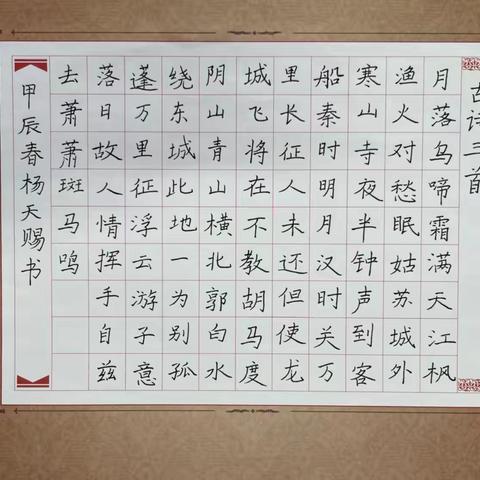 古诗三首
月落乌啼霜满天江枫
渔火对愁眠姑苏城外
寒山寺夜半钟声到客
船秦时明月汉时关万
里长征人未还但使龙
城飞将在不教胡马度
阴山青山横北郭白水
绕东城此地一为别孤
蓬万里征浮云游子意
落日故人情挥手自兹
去萧萧斑马鸣
甲辰春杨天赐书